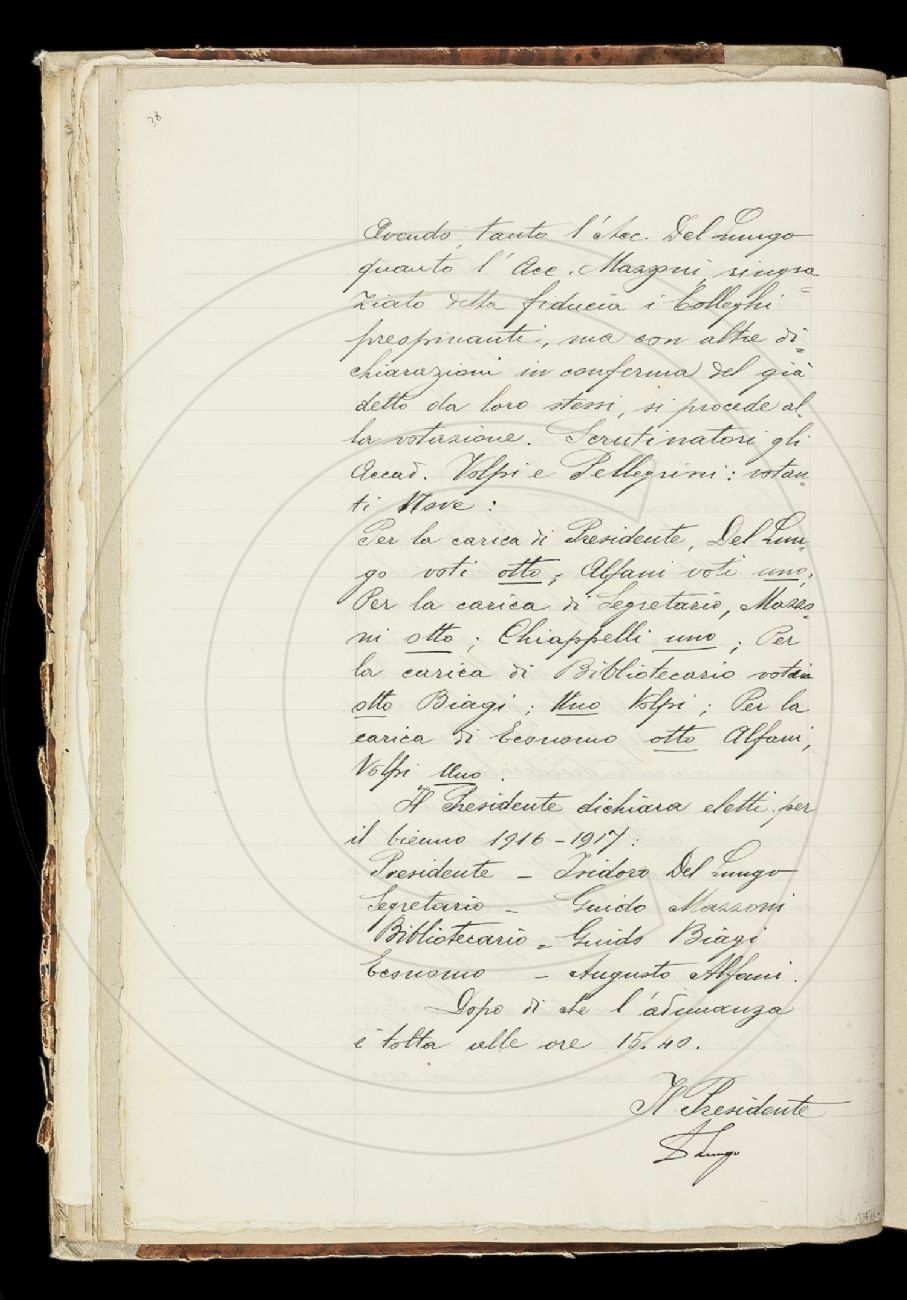 38
Avendo, tanto l'Acc. Del Lungo
quanto l'Acc. Mazzoni, ringra=
ziato della fiducia i Colleghi
preopinanti, ma con altre di=
chiarazioni in conferma del già
detto da loro stessi, si procede al=
la votazione. Scrutinatori gli
Accad. Volpi e Pellegrini: votan=
ti Nove:
Per la carica di Presidente, Del Lun=
go voti otto; Alfani voti uno;
Per la carica di Segretario, Mazzo=
ni otto; Chiappelli uno; Per
la carica di Bibliotecario voti
otto Biagi; Uno Volpi; Per la
carica di Economo otto Alfani,
Volpi Uno.
Il Presidente dichiara eletti per
il bienno 1916-1917:
Presidente - Isidoro Del Lungo
Segretario - Guido Mazzoni
Bibliotecario = Guido Biagi
Economo - Augusto Alfani.
Dopo di che l'adunanza
è tolta alle ore 15.40.
Il Presidente
D Lungo